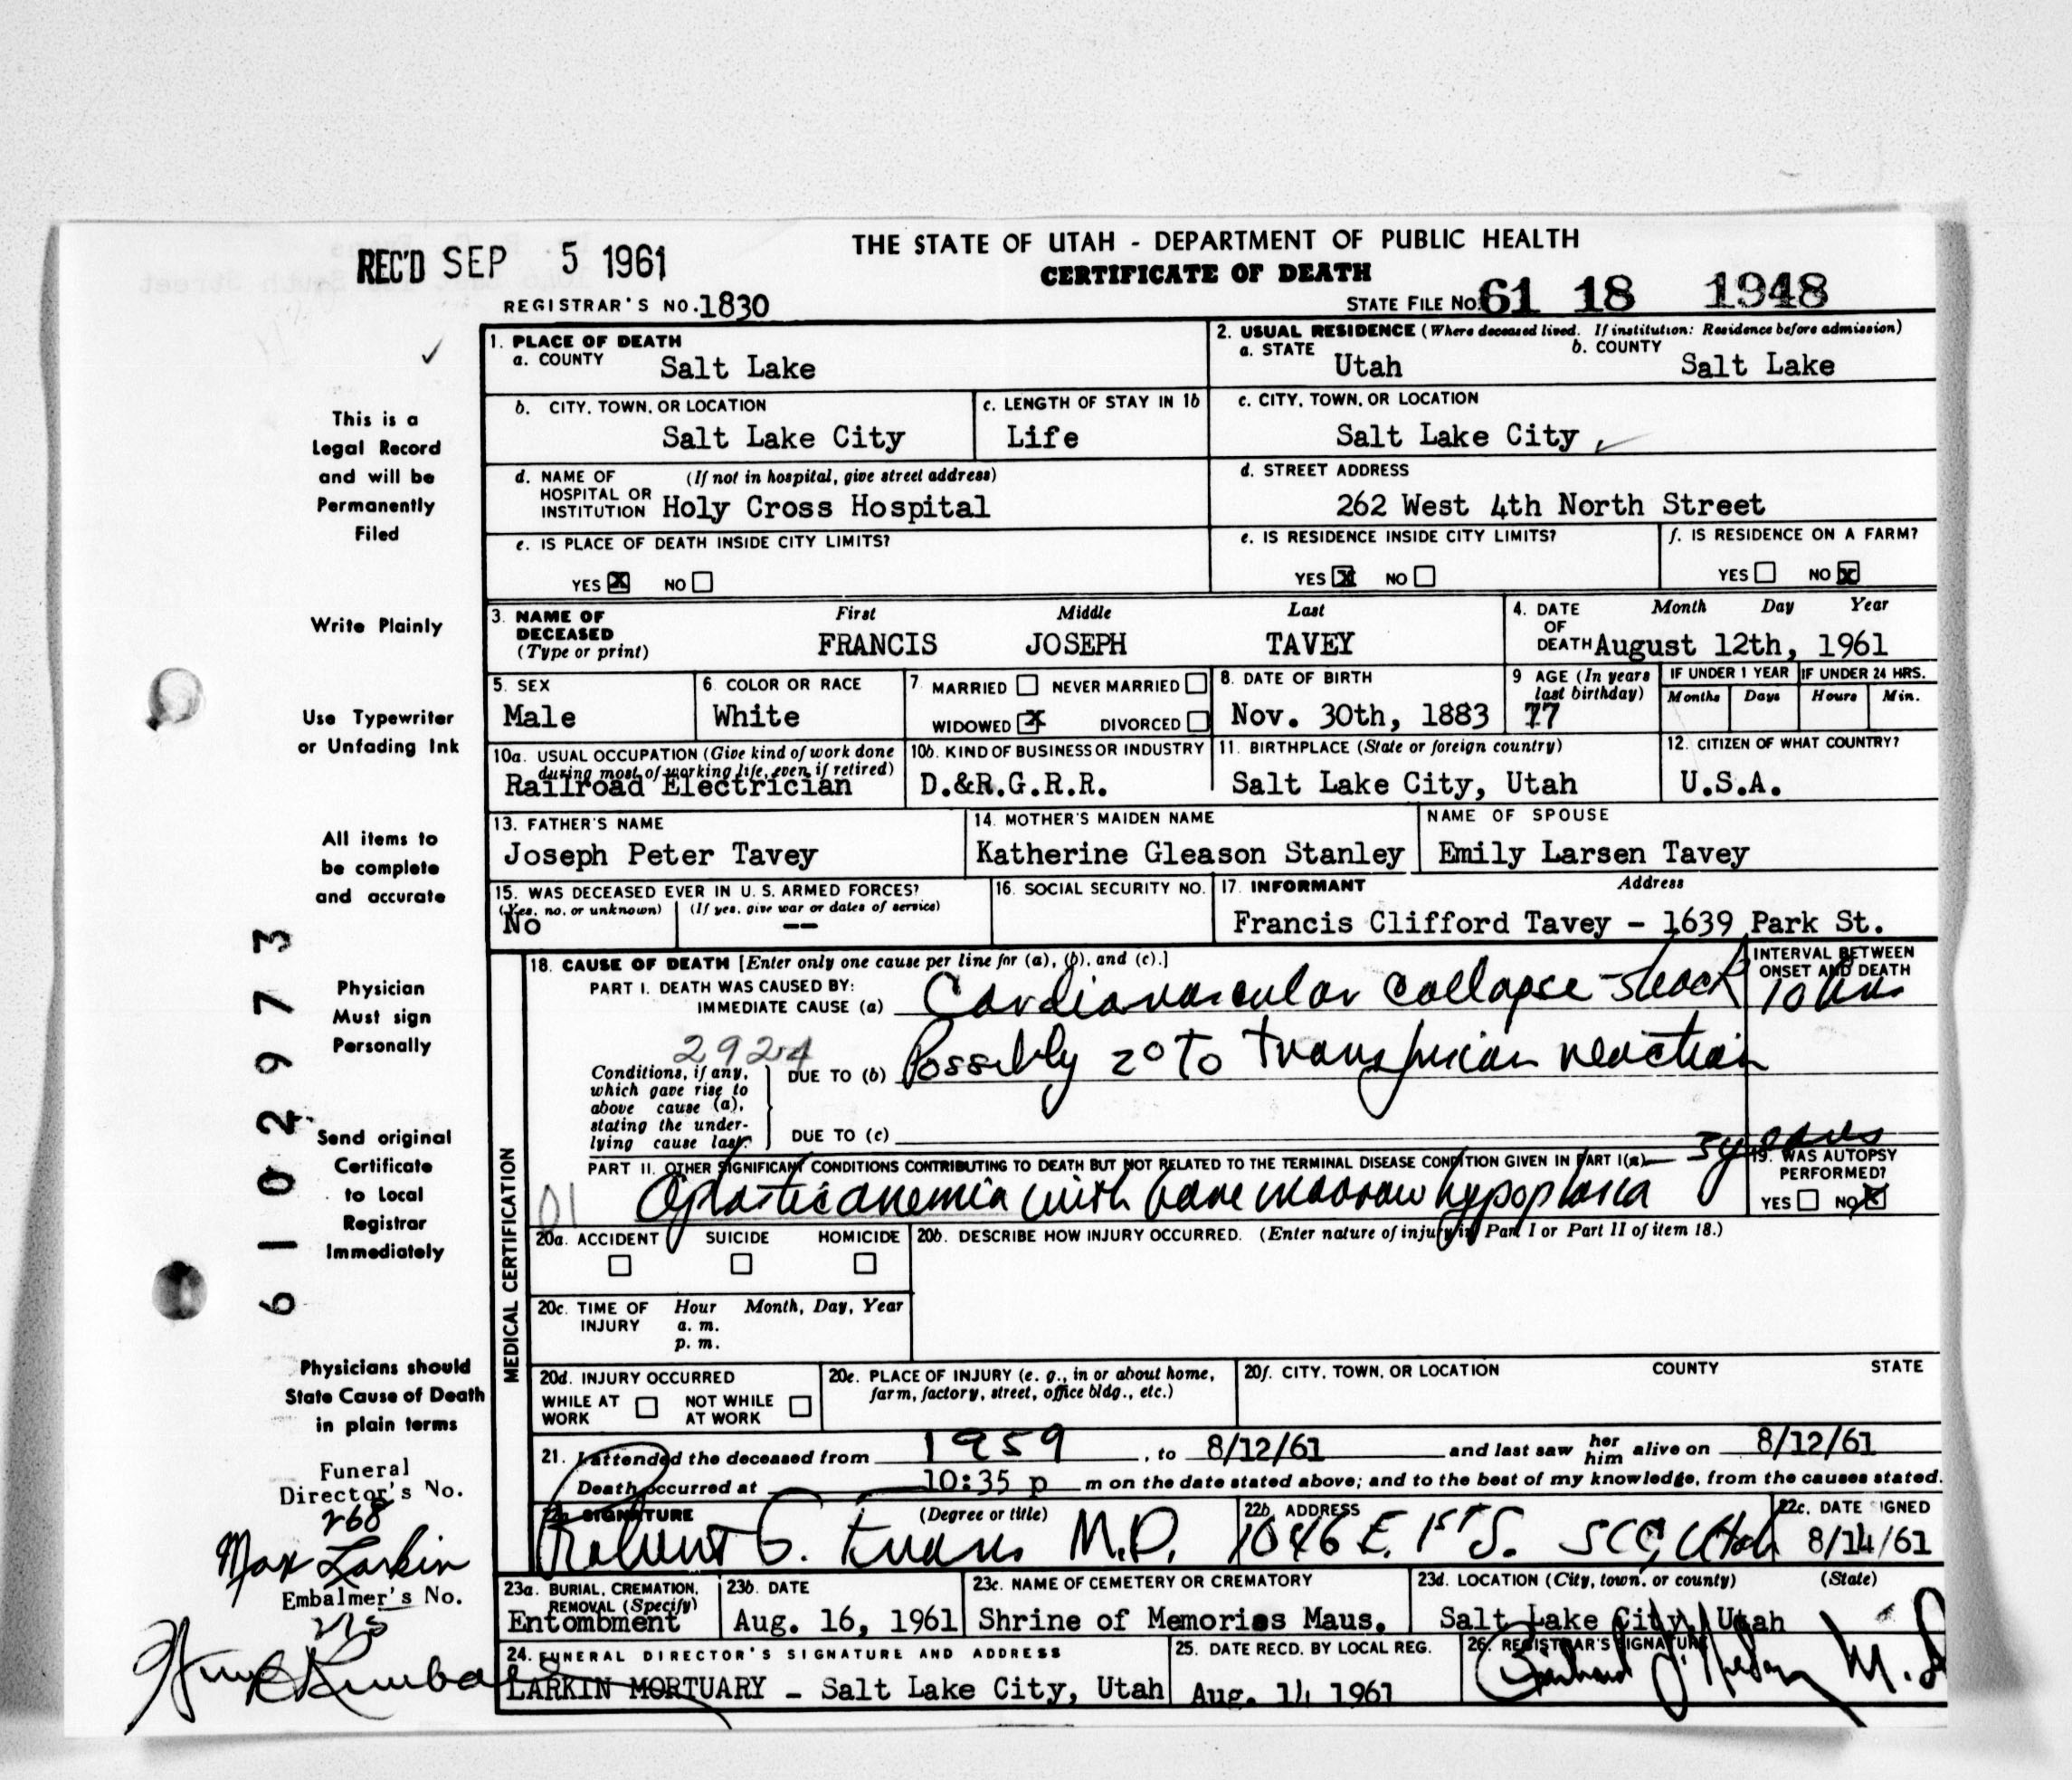 REC'D SEP 5 1961
THE STATE OF UTAH - DEPARTMENT OF PUBLIC HEALTH
CERTIFICATE OF DEATH
REGISTRAR'S NO. 1830
STATE FILE NO. 61 18 1948
1. PLACE OF DEATH
a. COUNTY Salt Lake
2. USUAL RESIDENCE (Where deceased lived. If institution: Residence before admission)
a. STATE Utah b. COUNTY Salt Lake
b. CITY, TOWN, OR LOCATION Salt Lake City
c. LENGTH OF STAY IN 1b Life
c. CITY, TOWN, OR LOCATION Salt Lake City
d. NAME OF HOSPITAL OR INSTITUTION (If not in hospital, give street address) Holy Cross Hospital
d. STREET ADDRESS 262 West 4th North Street
e. IS PLACE OF DEATH INSIDE CITY LIMITS?
YES X NO
e. IS RESIDENCE INSIDE CITY LIMITS?
YES X NO
f. IS RESIDENCE ON A FARM?
YES NO X
3. NAME OF DECEASED (Type or print)
First Middle Last
FRANCIS JOSEPH TAVEY
4. DATE OF DEATH Month Day Year
August 12th, 1961
5. SEX Male
6. COLOR OR RACE White
7. MARRIED NEVER MARRIED
WIDOWED X DIVORCED
8. DATE OF BIRTH Nov. 30th, 1883
9 AGE (In years last birthday) 77
IF UNDER 1 YEAR Months Days
IF UNDER 24 HRS. Hours Min.
10a. USUAL OCCUPATION (Give kind of work done during most of working life, even if retired)
Railroad Electrician
10b. KIND OF BUSINESS OR INDUSTRY
D.&R.G.R.R.
11. BIRTHPLACE (State or foreign country)
Salt Lake City, Utah
12. CITIZEN OF WHAT COUNTRY?
U.S.A.
13. FATHER'S NAME
Joseph Peter Tavey
14. MOTHER'S MAIDEN NAME
Katherine Gleason Stanley
NAME OF SPOUSE
Emily Larsen Tavey
15. WAS DECEASED EVER IN U. S. ARMED FORCES?
(Yes, no, or unknown) (If yes, give war or dates of service)
No --
16. SOCIAL SECURITY NO.
17. INFORMANT Address
Francis Clifford Tavey - 1639 Park St.
MEDICAL CERTIFICATION
18. CAUSE OF DEATH [Enter only one cause per line for (a), (b), and (c).]
INTERVAL BETWEEN ONSET AND DEATH
PART I. DEATH WAS CAUSED BY:
IMMEDIATE CAUSE (a) Cardiovascular collapse - shock 10 hrs
2924
Conditions, if any, which gave rise to above cause (a), stating the underlying cause last.
DUE TO (b) Possibly 2° to transfusion reaction
DUE TO (c)
PART II. OTHER SIGNIFICANT CONDITIONS CONTRIBUTING TO DEATH BUT NOT RELATED TO THE TERMINAL DISEASE CONDITION GIVEN IN PART I(a)
01 Aplastic anemia with bone marrow hypoplasia years
19. WAS AUTOPSY PERFORMED?
YES NO X
20a. ACCIDENT SUICIDE HOMICIDE
20b. DESCRIBE HOW INJURY OCCURRED. (Enter nature of injury in Part I or Part II of item 18.)
20c. TIME OF INJURY Hour Month, Day, Year
a. m.
p. m.
20d. INJURY OCCURRED
WHILE AT WORK NOT WHILE AT WORK
20e. PLACE OF INJURY (e. g., in or about home, farm, factory, street, office bldg., etc.)
20f. CITY, TOWN, OR LOCATION COUNTY STATE
21. I attended the deceased from 1959, to 8/12/61 and last saw her him alive on 8/12/61
Death occurred at 10:35 p m on the date stated above; and to the best of my knowledge, from the causes stated.
SIGNATURE (Degree or title)
Robert G. Evans M.D.
22b. ADDRESS
1046 E. 1st S. SLC, Utah
22c. DATE SIGNED
8/14/61
23a. BURIAL, CREMATION, REMOVAL (Specify)
Entombment
23b. DATE
Aug. 16, 1961
23c. NAME OF CEMETERY OR CREMATORY
Shrine of Memories Maus.
23d. LOCATION (City, town, or county) (State)
Salt Lake City, Utah
24. FUNERAL DIRECTOR'S SIGNATURE AND ADDRESS
LARKIN MORTUARY - Salt Lake City, Utah
25. DATE RECD. BY LOCAL REG.
Aug. 14 1961
26. REGISTRAR'S SIGNATURE
M.D
This is a
Legal Record
and will be
Permanently
Filed
Write Plainly
Use Typewriter
or Unfading Ink
All items to
be complete
and accurate
Physician
Must sign
Personally
Send original
Certificate
to Local
Registrar
Immediately
Physicians should
State Cause of Death
in plain terms
Funeral
Director's No.
268
Max Larkin
Embalmer's No.
6102973